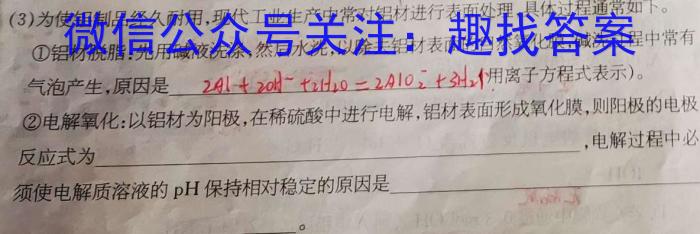 (3)为使铝制品经久耐用,现代工业生产中常对铝材进行表面处理,具体过程通常如下。
微信公众号关注：趣找答案
①铝材脱脂:先用碱液洗涤,然后水洗,以除去铝材表面的 碱洗过程中常有
气泡产生,原因是 2Al+2OH⁻+2H₂O=2AlO₂⁻+3H₂↑ 用离子方程式表示)。
②电解氧化:以铝材为阳极,在稀硫酸中进行电解,铝材表面形成氧化膜,则阳极的电极
反应式为 ,电解过程中必
须使电解质溶液的 pH 保持相对稳定的原因是
。